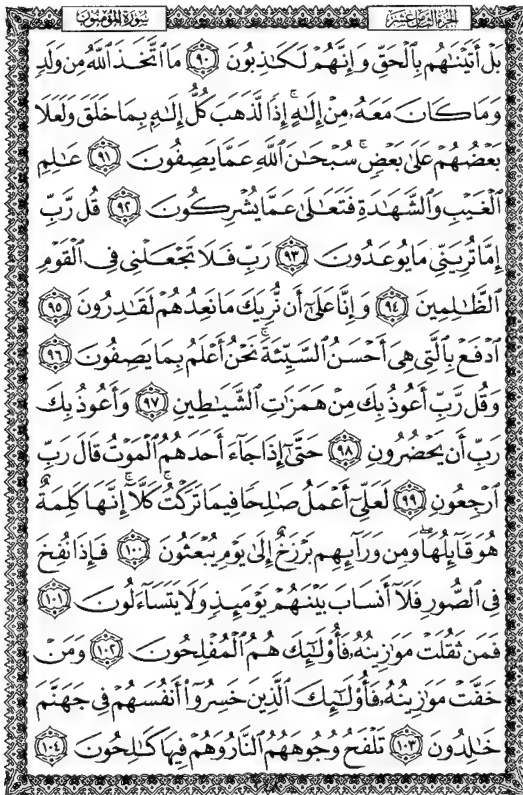 سُورَةُ المُؤْمِنُونَ
الجُزْءُ الثَّامِنَ عَشَرَ
بَلْ أَتَيْنَاهُم بِالْحَقِّ وَإِنَّهُمْ لَكَاذِبُونَ ﴿٩٠﴾ مَا اتَّخَذَ اللَّهُ مِن وَلَدٍ
وَمَا كَانَ مَعَهُ مِنْ إِلَٰهٍ ۚ إِذًا لَّذَهَبَ كُلُّ إِلَٰهٍ بِمَا خَلَقَ وَلَعَلَا
بَعْضُهُمْ عَلَىٰ بَعْضٍ ۚ سُبْحَانَ اللَّهِ عَمَّا يَصِفُونَ ﴿٩١﴾ عَالِمِ
الْغَيْبِ وَالشَّهَادَةِ فَتَعَالَىٰ عَمَّا يُشْرِكُونَ ﴿٩٢﴾ قُل رَّبِّ
إِمَّا تُرِيَنِّي مَا يُوعَدُونَ ﴿٩٣﴾ رَبِّ فَلَا تَجْعَلْنِي فِي الْقَوْمِ
الظَّالِمِينَ ﴿٩٤﴾ وَإِنَّا عَلَىٰ أَن نُّرِيَكَ مَا نَعِدُهُمْ لَقَادِرُونَ ﴿٩٥﴾
ادْفَعْ بِالَّتِي هِيَ أَحْسَنُ السَّيِّئَةَ ۚ نَحْنُ أَعْلَمُ بِمَا يَصِفُونَ ﴿٩٦﴾
وَقُل رَّبِّ أَعُوذُ بِكَ مِنْ هَمَزَاتِ الشَّيَاطِينِ ﴿٩٧﴾ وَأَعُوذُ بِكَ
رَبِّ أَن يَحْضُرُونِ ﴿٩٨﴾ حَتَّىٰ إِذَا جَاءَ أَحَدَهُمُ الْمَوْتُ قَالَ رَبِّ
ارْجِعُونِ ﴿٩٩﴾ لَعَلِّي أَعْمَلُ صَالِحًا فِيمَا تَرَكْتُ ۚ كَلَّا ۚ إِنَّهَا كَلِمَةٌ
هُوَ قَائِلُهَا ۖ وَمِن وَرَائِهِم بَرْزَخٌ إِلَىٰ يَوْمِ يُبْعَثُونَ ﴿١٠٠﴾ فَإِذَا نُفِخَ
فِي الصُّورِ فَلَا أَنسَابَ بَيْنَهُمْ يَوْمَئِذٍ وَلَا يَتَسَاءَلُونَ ﴿١٠١﴾
فَمَن ثَقُلَتْ مَوَازِينُهُ فَأُولَٰئِكَ هُمُ الْمُفْلِحُونَ ﴿١٠٢﴾ وَمَنْ
خَفَّتْ مَوَازِينُهُ فَأُولَٰئِكَ الَّذِينَ خَسِرُوا أَنفُسَهُمْ فِي جَهَنَّمَ
خَالِدُونَ ﴿١٠٣﴾ تَلْفَحُ وُجُوهَهُمُ النَّارُ وَهُمْ فِيهَا كَالِحُونَ ﴿١٠٤﴾